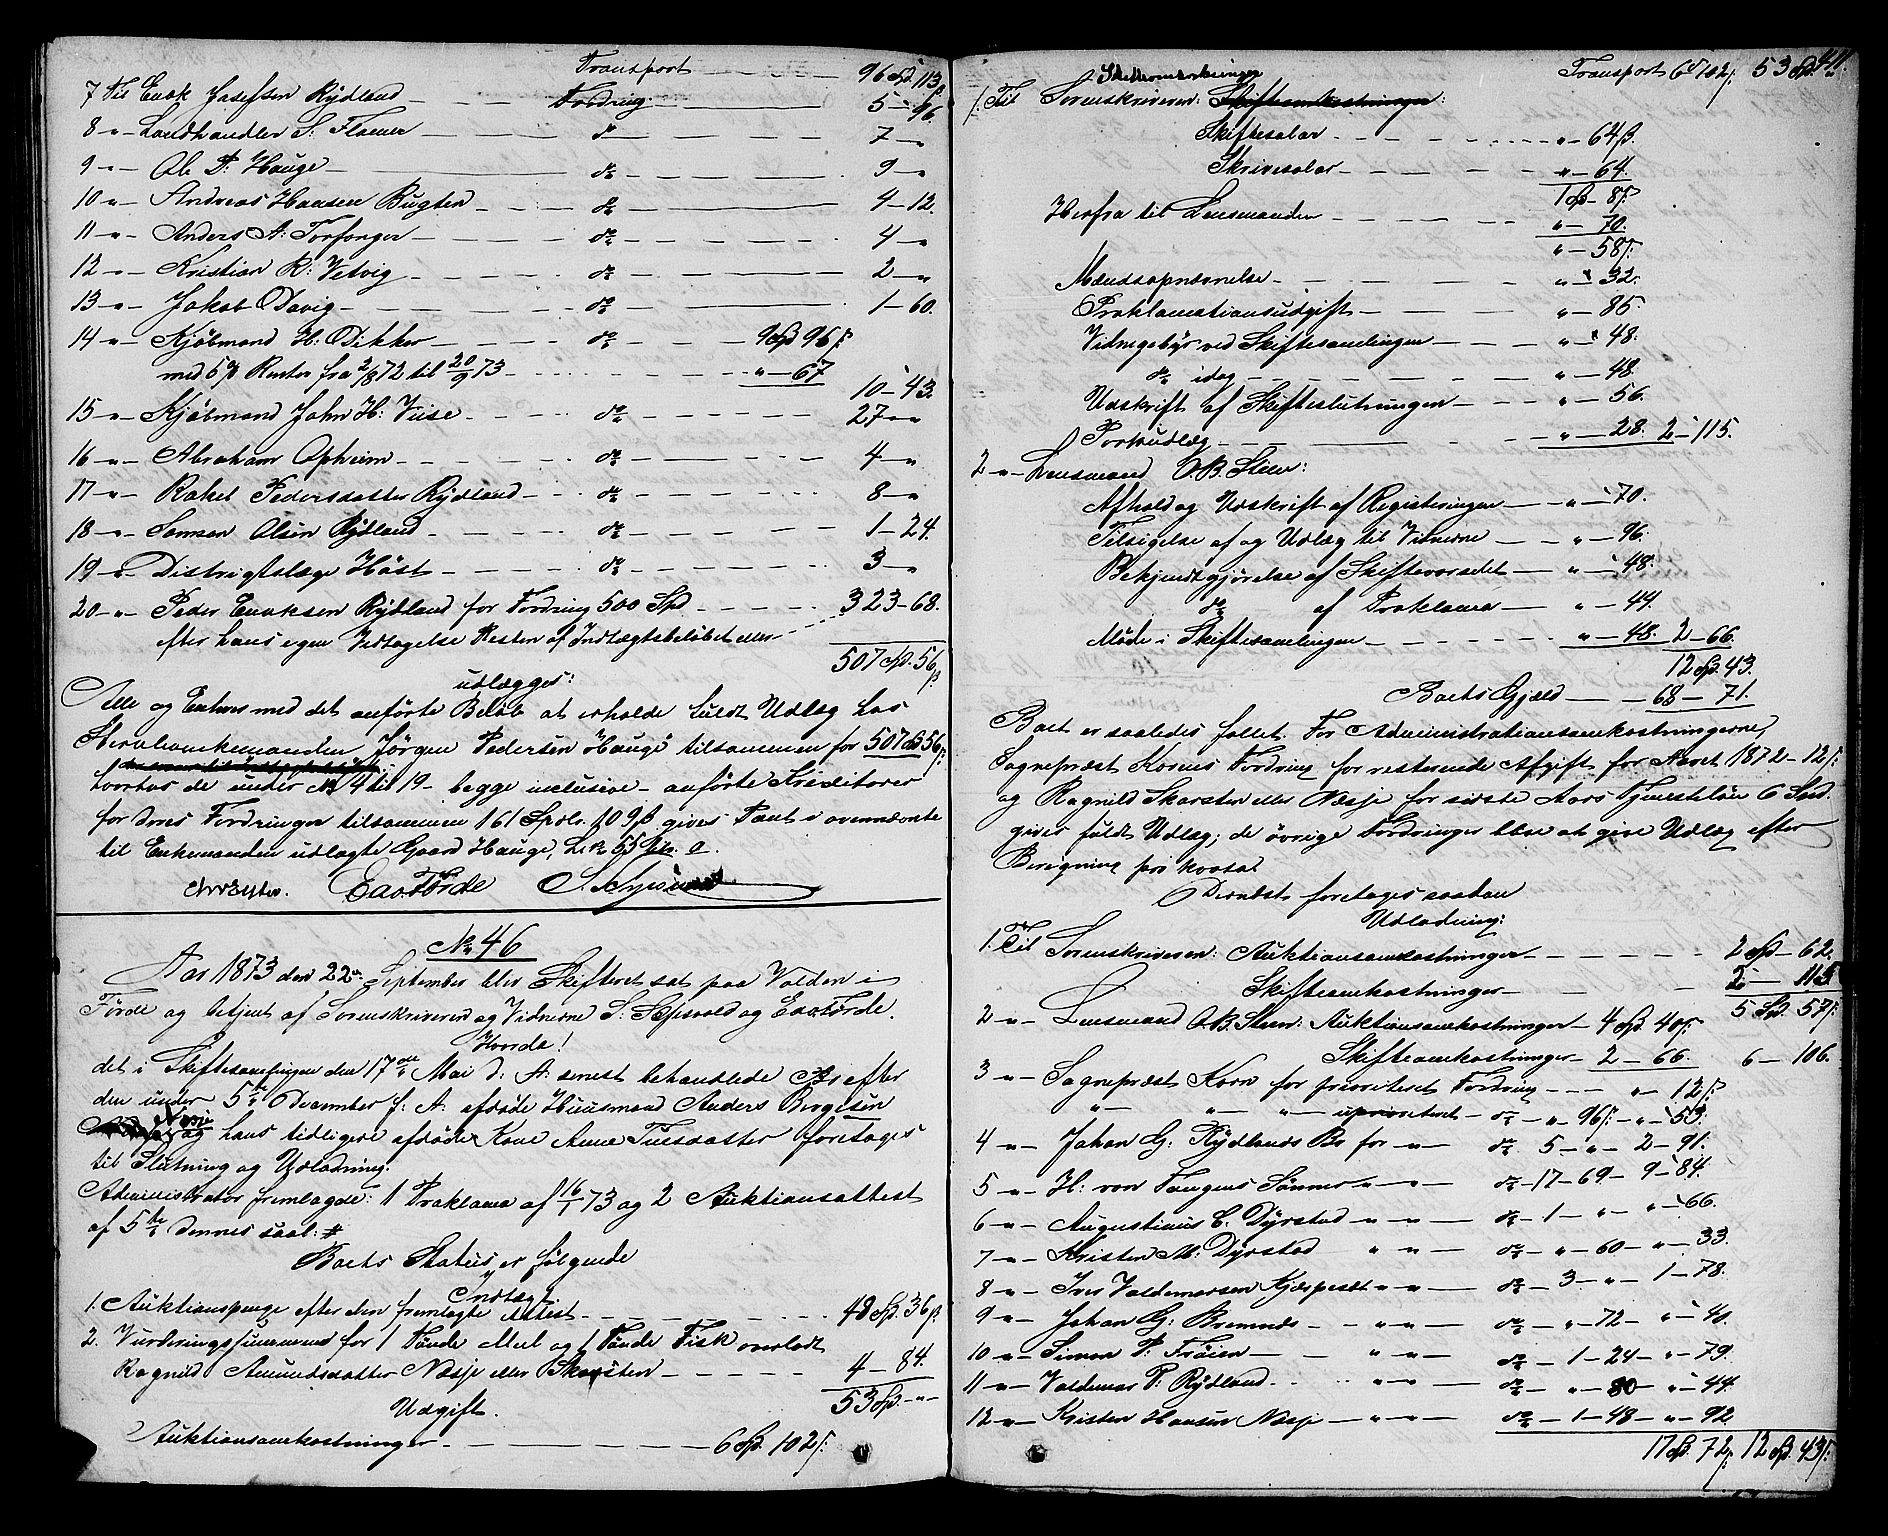 Transport — — — 96 Spd 113 ß
7 Til Enok Josefsen Rydland — Fordring — 5 — 96.
8 „ Landhandler S: Flaener — do — 7 — „
9 „ Ole P: Hauge — do — 9 — „
10 „ Andreas Hansen Bugten — do — 4 — 12.
11 „ Anders A: Torfonger — do — 4 — „
12 „ Kristian R: Vetvig — do — 2 — „
13 „ Jakob Davig — do — 1 — 60.
14 „ Kjöbmand H: Dikker — do — 9 Spd 96 ß.
med 5 % Renter fra 2/8 72 til 20/9 73 — „ — 67
10 — 43.
15 „ Kjöbmand John H: Viise — do — 27 „ „
16 „ Abraham Opheim — do — 4 — „
17 „ Rakel Pedersdatter Rydland — do — 8 — „
18 „ Samson Olsen Rydland — do — 1 — 24.
19 „ Distrigtslæge Höst — do — 3 — „
20 „ Peder Enoksen Rydland for Fordring 500 Spd — 323 — 68.
efter hans egen Vedtagelse Resten af Indtægtsbeløbet eller
507 Spd. 56 ß
udlægges:
Alle og Enhver med det anførte Beløb at erholde fuldt Udlæg hos
Stervboenkemanden Jörgen Pedersen Hauge tilsammen for 507 Spd 56 ß.
hvorhos de under No 4 til 19 — begge inclusive — anførte Kreditorer
for deres Fordringer tilsammen 161 Spdlr. 109 ß gives Pant i ovennævnte
til Enkemanden udlagte Gaard Hauge, L. No 65 a.
EaaFörde
No 46
Aar 1873 den 22de September blev Skifteret sat paa Volden i
Förde og betjent af Sorenskriveren og Vidnerne S. Sepsvold og EaaFörde.
Hvorda!
det i Skiftesamlingen den 17de Mai d: A: senest behandlede Bo efter
den under 5te December f: A: afdøde Huusmand Anders Börgesen
Næsje og hans tidligere afdøde Kone Anne Tuesdatter foretages
til Slutning og Udlodning.
Administrator fremlagde: 1 Proklama af 16/1 73 og 2 Auktionsattest
af 5te dennes saal: #
Boets Status er følgende
Indtægt.
1. Auktionspenge efter den fremlagte Attest — — — 48 Spd 36 ß.
2. Vurderingssummerne for 1 Tønde Meel og 1 Tønde Fisk overladt
Ragnild Amundsdatter Næsje eller Skarsten — — — 4 — 84.
53 Spd. — „ —
Udgift.
Auktionsomkostninger — — — 6 Spd. 102 ß.
411
Transport 6 Spd 102 ß. 53 Spd. „
1. Til Sorenskriveren: Skifteomkostninger:
Skiftesalar — — — „ — 64 ß.
Skrivesalar — — — „ — 64.
1 Spd — 8 ß.
Herfra til Lensmanden — — „ — 70.
„ — 58 ß.
Mændsopnævnelse — — — „ — 32.
Proklamationsudgift — — — „ — 85
Vidnegebyr ved Skiftesamlingen — — „ — 48.
do idag — — — „ — 48.
Udskrift af Skifteslutningen — — „ — 56.
Portoudlæg — — — „ — 28. 2 — 115.
2 „ Lensmand O. B. Steen:
Afhold og Udskrift af Registeringen — „ — 70.
Tilsigelse af og Udlæg til Vidnerne — „ — 96.
Bekjendtgjørelse af Skiftevarselet — „ — 48.
do af Proklama — „ — 44.
Møde i Skiftesamlingen — — — „ — 48. 2 — 66.
12 Spd. 43.
Boets Gjæld — — 68 — 71.
Boet er saaledes fallit. For Administrationsomkostningerne,
Sognepræst Korns Fordring for resterende Afgift for Aaret 1872 — 12 ß.
og Ragnild Skarsten eller Næsje for sidste Aars Tjenesteløn 6 Spd.
gives fuldt Udlæg; de övrige Fordringer blive at give Udlæg efter
Beregning pro kvota.
Dernæst foretages saadan
Udlodning:
1. Til Sorenskriveren: Auktionsomkostninger — — — 2 Spd — 62.
Skifteomkostninger — — 2 — 115.
5 Spd. 57 ß.
2 „ Lensmand O. B. Steen: Auktionsomkostninger — 4 Spd. 40 ß.
Skifteomkostninger — 2 — 66. 6 — 106.
3 „ Sognepræst Korn for prioriteret Fordring — — „ — 12 ß.
„ — „ — „ — uprioriteret — do — „ — 96 ß. — „ — 53.
4 „ Johan G: Rydlands Bo for „ — do 5 — „ — 2 — 91.
5 „ H: von Tangens Sönner „ — „ — do — 17 — 69 — 9 — 84.
6 „ Augustinus C. Dyrstad „ — „ — do — 1 — „ — „ — 66.
7 „ Kristen M: Dyrstad „ „ — do — „ — 60 — „ — 33.
8 „ Iver Valdemarsen Kjæspesæt „ „ — do — 3 — „ — 1 — 78.
9 „ Johan G: Bremnes — „ „ — do — „ — 72 — „ — 40.
10 „ Simon P: Fröien — „ „ — do — 1 — 24 — „ — 79.
11 „ Valdemar P: Rydland — „ „ — do — „ — 80 — „ — 44.
12 „ Kristen Hansen Næsje — „ „ — do — 1 — 48 — „ — 92.
17 Spd. 72 ß. 12 Spd. 43 ß.